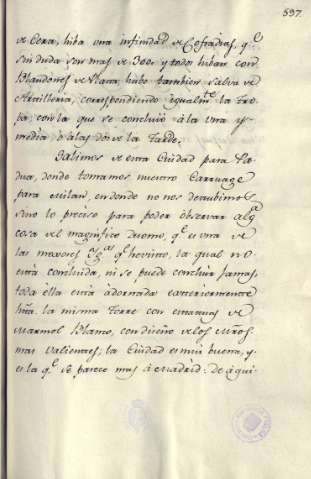 597.
de Cera, hiba una infinidad de Cofradias, q.e
sin duda son mas de 300: y todos hiban con
Blandones de Plata, hubo tambien salva de
Artilleria, correspondiendo igualm.te la tro-
pa, con la que se concluió à la una y
media, o a las dos de la tarde.
Salimos de esta Ciudad para Pa-
dua, donde tomamos nuestro Carruage
para Milàn, en donde no nos detubimos
sino lo preciso para poder observar alg.a
cosa del magnifico Duomo, q.e es una de
las maiores q.e he visto, la qual no
està concluida, ni se puede concluir jamas,
toda ella està adornada exteriormente
la misma Torre con estatuas de
Marmol Blanco, con diseño de los Mros.
mas valientes; la Ciudad es mui buena, y
es la q.e se parece mas à Madrid: de aqui